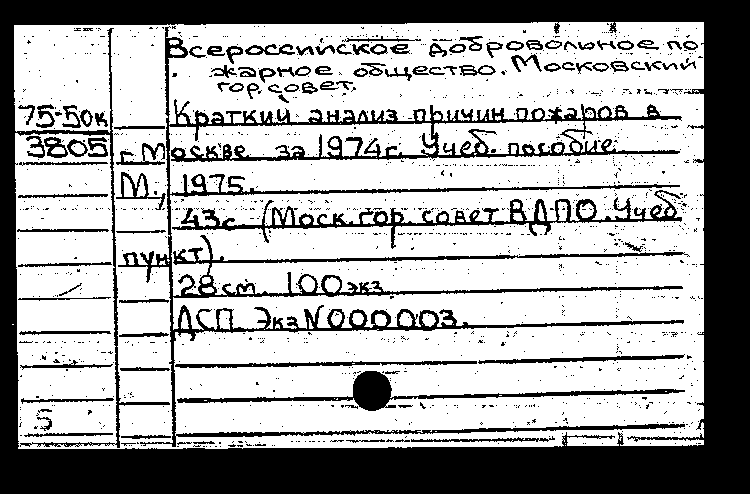 Всероссийское добровольное по-
жарное общество. Московский
гор. совет.
75-50к Краткий анализ причин пожаров в
3805 г. Москве за 1974г. Учеб. пособие.
М., 1975.
43с. (Моск. гор. совет ВДПО. Учеб.
пункт).
28 см. 100 экз.
ДСП. Экз N000003.
5